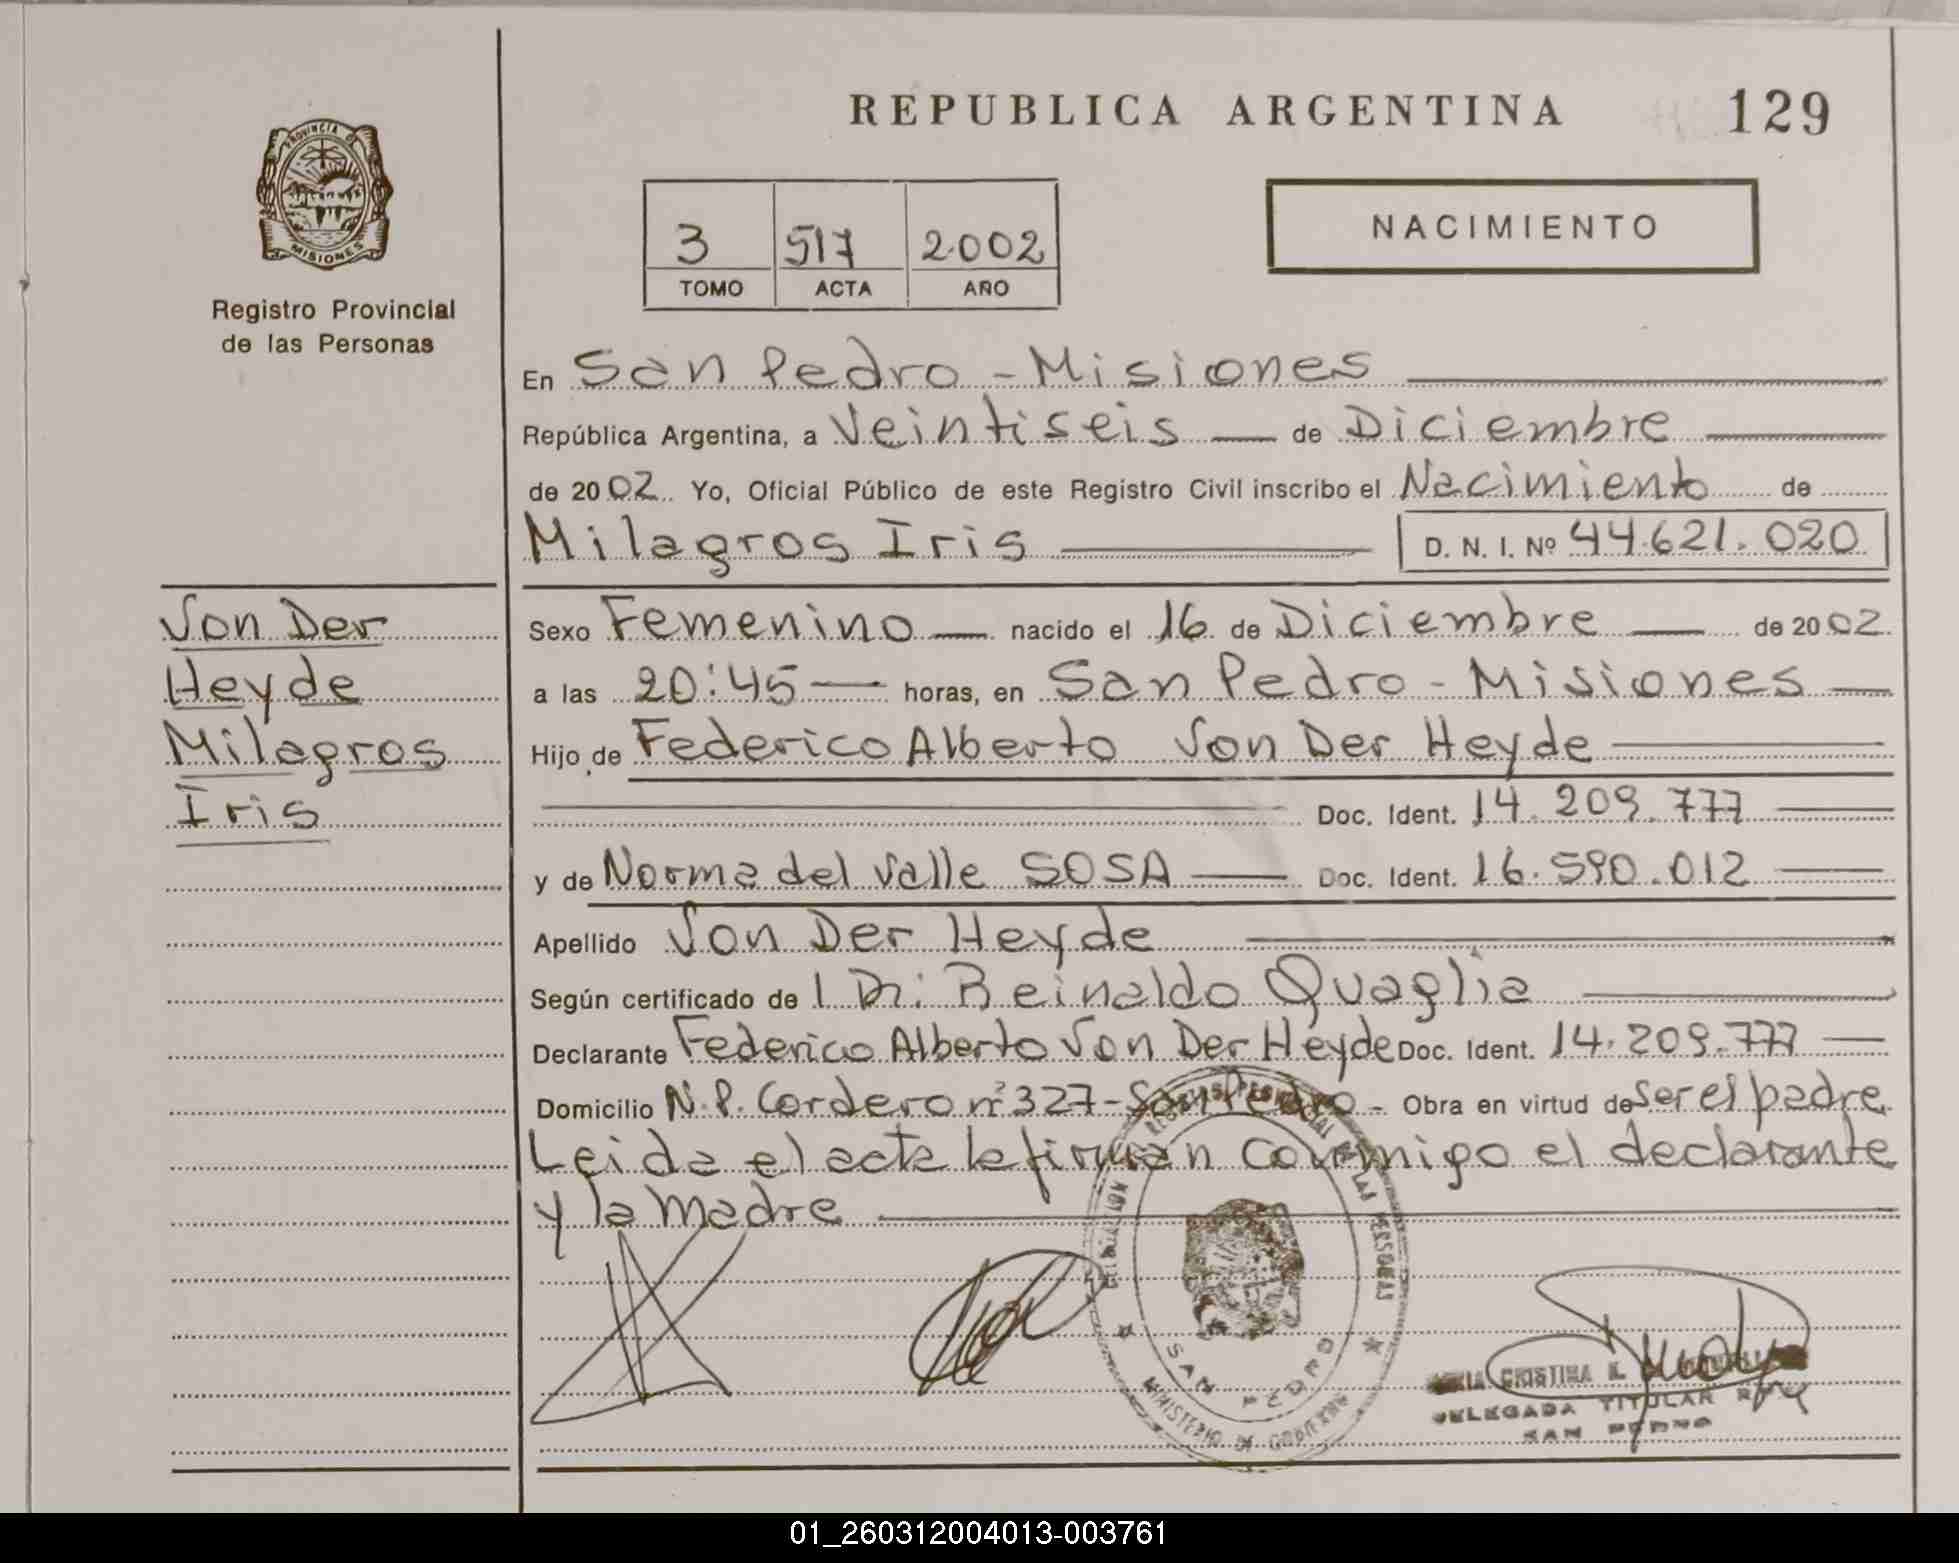 REPUBLICA ARGENTINA
129
PROVINCIA DE
MISIONES
Registro Provincial
de las Personas
3 517 2.002
TOMO ACTA AÑO
NACIMIENTO
En San Pedro - Misiones
República Argentina, a Veintiseis de Diciembre
de 2002 Yo, Oficial Público de este Registro Civil inscribo el Nacimiento de
Milagros Iris D. N. I. Nº 44.621.020
Von Der
Heyde
Milagros
Iris
Sexo Femenino nacido el 16 de Diciembre de 2002
a las 20:45 horas, en San Pedro - Misiones
Hijo de Federico Alberto Von Der Heyde
Doc. Ident. 14.209.777
y de Norma del Valle SOSA Doc. Ident. 16.590.012
Apellido Von Der Heyde
Según certificado de Dr: Reinaldo Quaglia
Declarante Federico Alberto Von Der Heyde Doc. Ident. 14.209.777
Domicilio N.P. Cordero nº 327 - San Pedro - Obra en virtud de ser el padre
Leida el acta la firman conmigo el declarante
y la madre
DE LAS PERSONAS
SAN PEDRO
MINISTERIO DE GOBIERNO
CRISTINA
DELEGADA TITULAR
SAN PEDRO
01_260312004013-003761